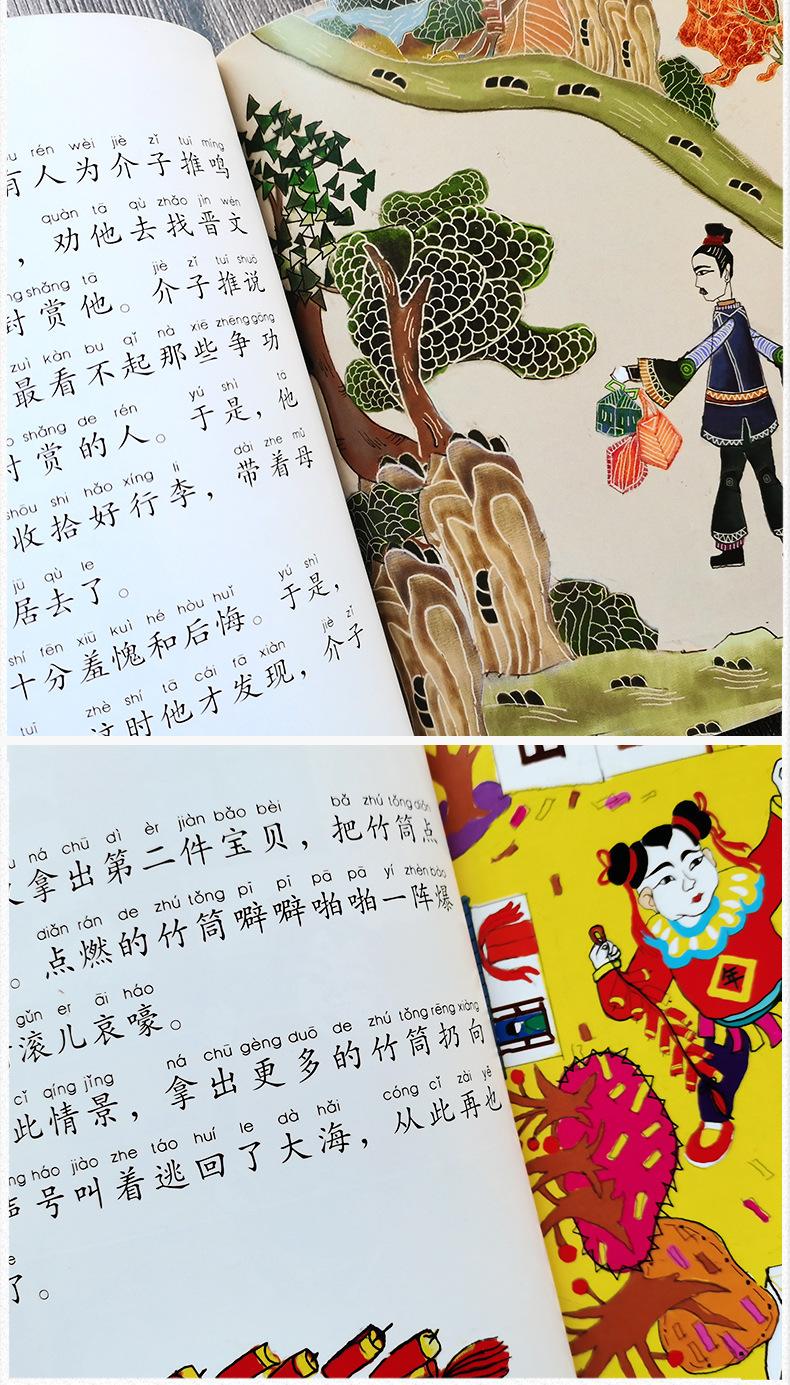 rén wèi jiè zǐ tuī míng
有人为介子推鸣
quàn tā qù zhǎo jìn wén
，劝他去找晋文
shǎng tā jiè zǐ tuī shuō
封赏他。介子推说
zuì kàn bu qǐ nà xiē zhēng gōng
最看不起那些争功
shǎng de rén yú shì tā
讨赏的人。于是，他
shōu shi hǎo xíng li dài zhe mǔ
收拾好行李，带着母
jū qù le
居去了。
shí fēn xiū kuì hé hòu huǐ yú shì
十分羞愧和后悔。于是，
zhè shí tā cái fā xiàn jiè zǐ
这时他才发现，介子
tuī
ná chū dì èr jiàn bǎo bèi bǎ zhú tǒng diǎn
又拿出第二件宝贝，把竹筒点
diǎn rán de zhú tǒng pī pī pā pā yí zhèn bào
。点燃的竹筒噼噼啪啪一阵爆
gǔn er āi háo
滚儿哀嚎。
cǐ qíng jǐng ná chū gèng duō de zhú tǒng rēng xiàng
此情景，拿出更多的竹筒扔向
háo jiào zhe táo huí le dà hǎi cóng cǐ zài yě
号叫着逃回了大海，从此再也
了。
年